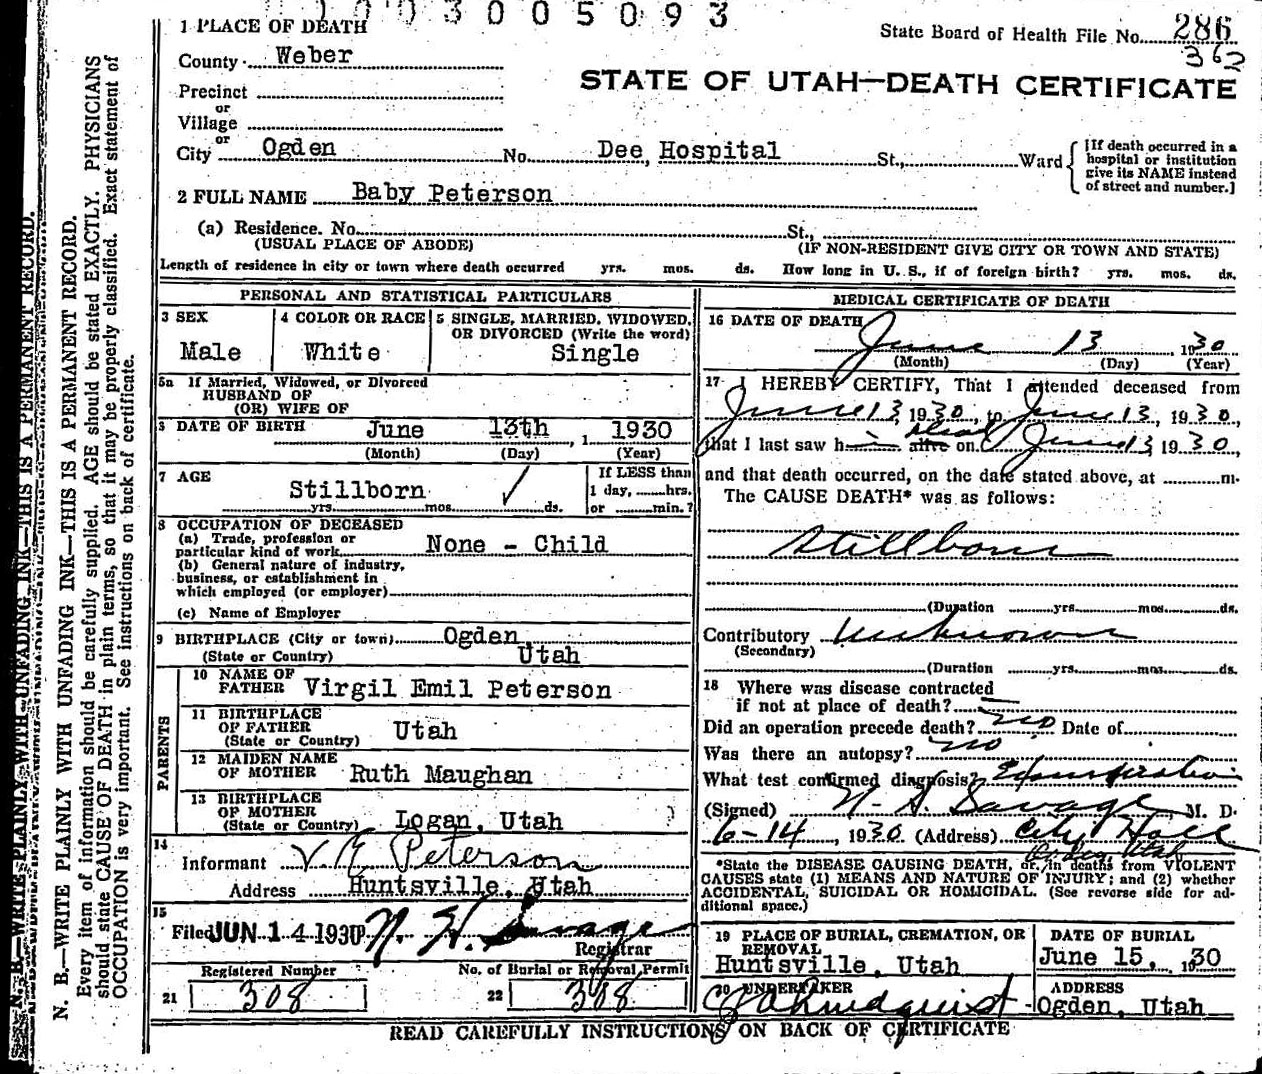 1003005093
State Board of Health File No. 286
362
STATE OF UTAH—DEATH CERTIFICATE
1 PLACE OF DEATH
County Weber
Precinct
or
Village
or
City Ogden No. Dee Hospital St., Ward
[If death occurred in a
hospital or institution
give its NAME instead
of street and number.]
2 FULL NAME Baby Peterson
(a) Residence. No. St.,
(USUAL PLACE OF ABODE) (IF NON-RESIDENT GIVE CITY OR TOWN AND STATE)
Length of residence in city or town where death occurred yrs. mos. ds. How long in U. S., if of foreign birth? yrs. mos. ds.
PERSONAL AND STATISTICAL PARTICULARS
3 SEX
Male
4 COLOR OR RACE
White
5 SINGLE, MARRIED, WIDOWED,
OR DIVORCED (Write the word)
Single
5a If Married, Widowed, or Divorced
HUSBAND OF
(OR) WIFE OF
6 DATE OF BIRTH June 13th, 1 1930
(Month) (Day) (Year)
7 AGE
Stillborn
yrs. mos. ds.
If LESS than
1 day, hrs.
or min.?
8 OCCUPATION OF DECEASED
(a) Trade, profession or
particular kind of work None - Child
(b) General nature of industry,
business, or establishment in
which employed (or employer)
(c) Name of Employer
9 BIRTHPLACE (City or town) Ogden
(State or Country) Utah
PARENTS
10 NAME OF
FATHER Virgil Emil Peterson
11 BIRTHPLACE
OF FATHER Utah
(State or Country)
12 MAIDEN NAME
OF MOTHER Ruth Maughan
13 BIRTHPLACE
OF MOTHER
(State or Country) Logan, Utah
14
Informant V E Peterson
Address Huntsville, Utah
15
Filed JUN 14 1930 N. H. Savage
Registrar
Registered Number
21 308
No. of Burial or Removal Permit
22 308
MEDICAL CERTIFICATE OF DEATH
16 DATE OF DEATH
June 13, 1930
(Month) (Day) (Year)
17 I HEREBY CERTIFY, That I attended deceased from
June 13, 1930, to June 13, 1930,
that I last saw h alive dead on June 13, 1930,
and that death occurred, on the date stated above, at m.
The CAUSE DEATH* was as follows:
Stillborn
(Duration yrs. mos. ds.
Contributory Unknown
(Secondary)
(Duration yrs. mos. ds.
18 Where was disease contracted
if not at place of death? —
Did an operation precede death? no Date of
Was there an autopsy? no
What test confirmed diagnosis? Examination
(Signed) N. H. Savage M. D.
6-14, 1930 (Address) City Hall
Ogden, Utah
*State the DISEASE CAUSING DEATH, or, in deaths from VIOLENT
CAUSES state (1) MEANS AND NATURE OF INJURY; and (2) whether
ACCIDENTAL, SUICIDAL OR HOMICIDAL. (See reverse side for ad-
ditional space.)
19 PLACE OF BURIAL, CREMATION, OR
REMOVAL
Huntsville, Utah
DATE OF BURIAL
June 15, 1930
20 UNDERTAKER
ADDRESS
Ogden, Utah
READ CAREFULLY INSTRUCTIONS ON BACK OF CERTIFICATE
N. B.—WRITE PLAINLY WITH UNFADING INK—THIS IS A PERMANENT RECORD.
N. B.—WRITE PLAINLY WITH UNFADING INK—THIS IS A PERMANENT RECORD.
Every item of information should be carefully supplied. AGE should be stated EXACTLY. PHYSICIANS
should state CAUSE OF DEATH in plain terms, so that it may be properly classified. Exact statement of
OCCUPATION is very important. See instructions on back of certificate.